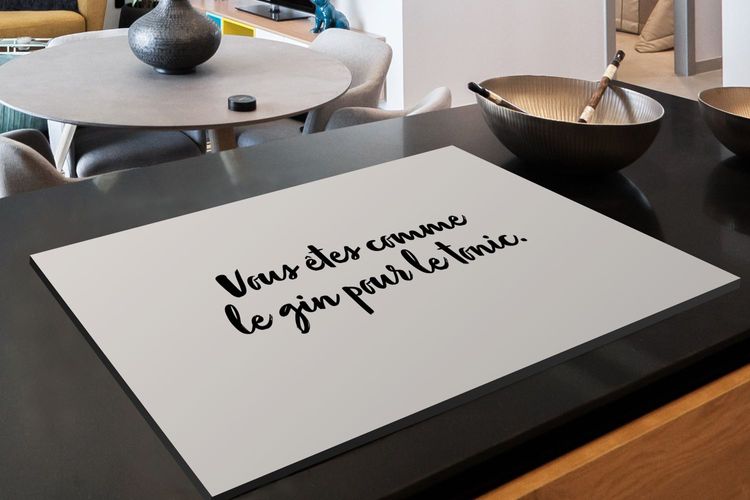 Vous êtes comme
le gin pour le tonic.